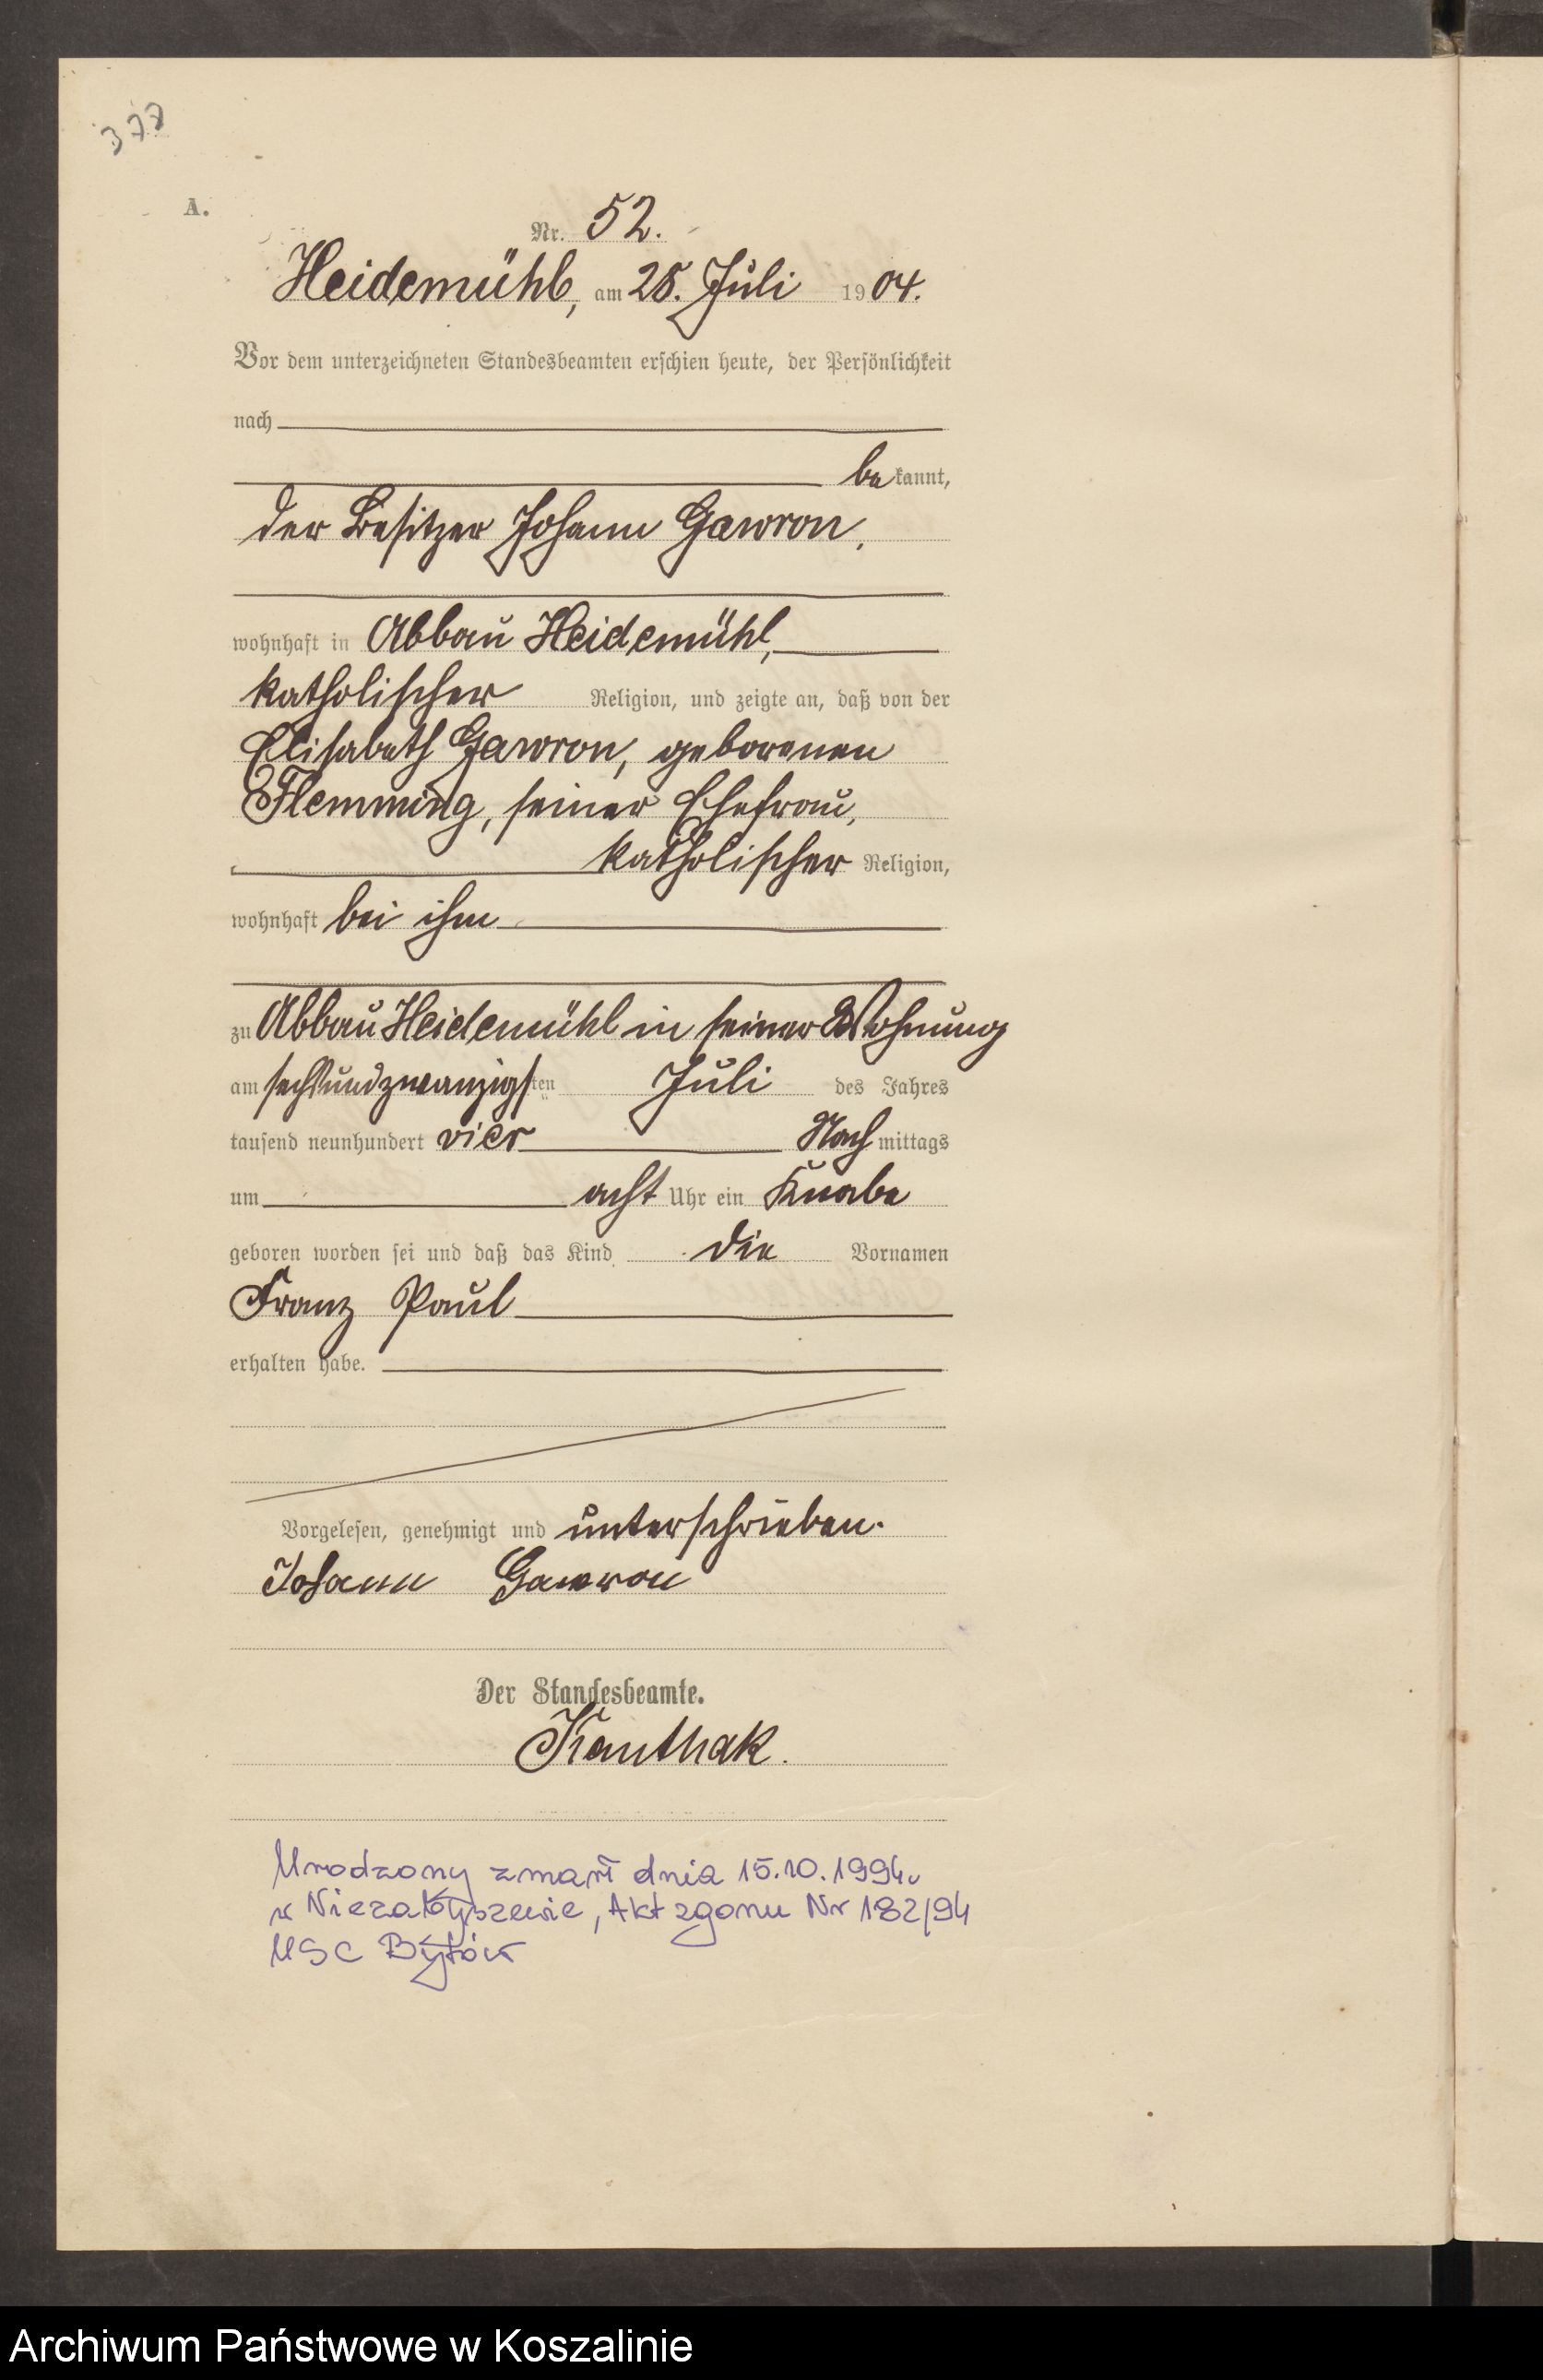 377
A.
Nr. 52.
Heidemühl, am 28. Juli 1904.
Vor dem unterzeichneten Standesbeamten erschien heute, der Persönlichkeit
nach
bekannt,
der Besitzer Johann Gawron,
wohnhaft in Abbau Heidemühl,
katholischer Religion, und zeigte an, daß von der
Elisabeth Gawron, geborenen
Flemming, seiner Ehefrau,
katholischer Religion,
wohnhaft bei ihm
zu Abbau Heidemühl in seiner Wohnung
am sechsundzwanzigsten Juli des Jahres
tausend neunhundert vier Nachmittags
um acht Uhr ein Knabe
geboren worden sei und daß das Kind die Vornamen
Franz Paul
erhalten habe.
Vorgelesen, genehmigt und unterschrieben.
Johann Gawron
Der Standesbeamte.
Kanthak.
Urodzony zmarł dnia 15.10.1994r
w Niezabyszewie, Akt zgonu Nr 182/94
USC Bytów
Archiwum Państwowe w Koszalinie